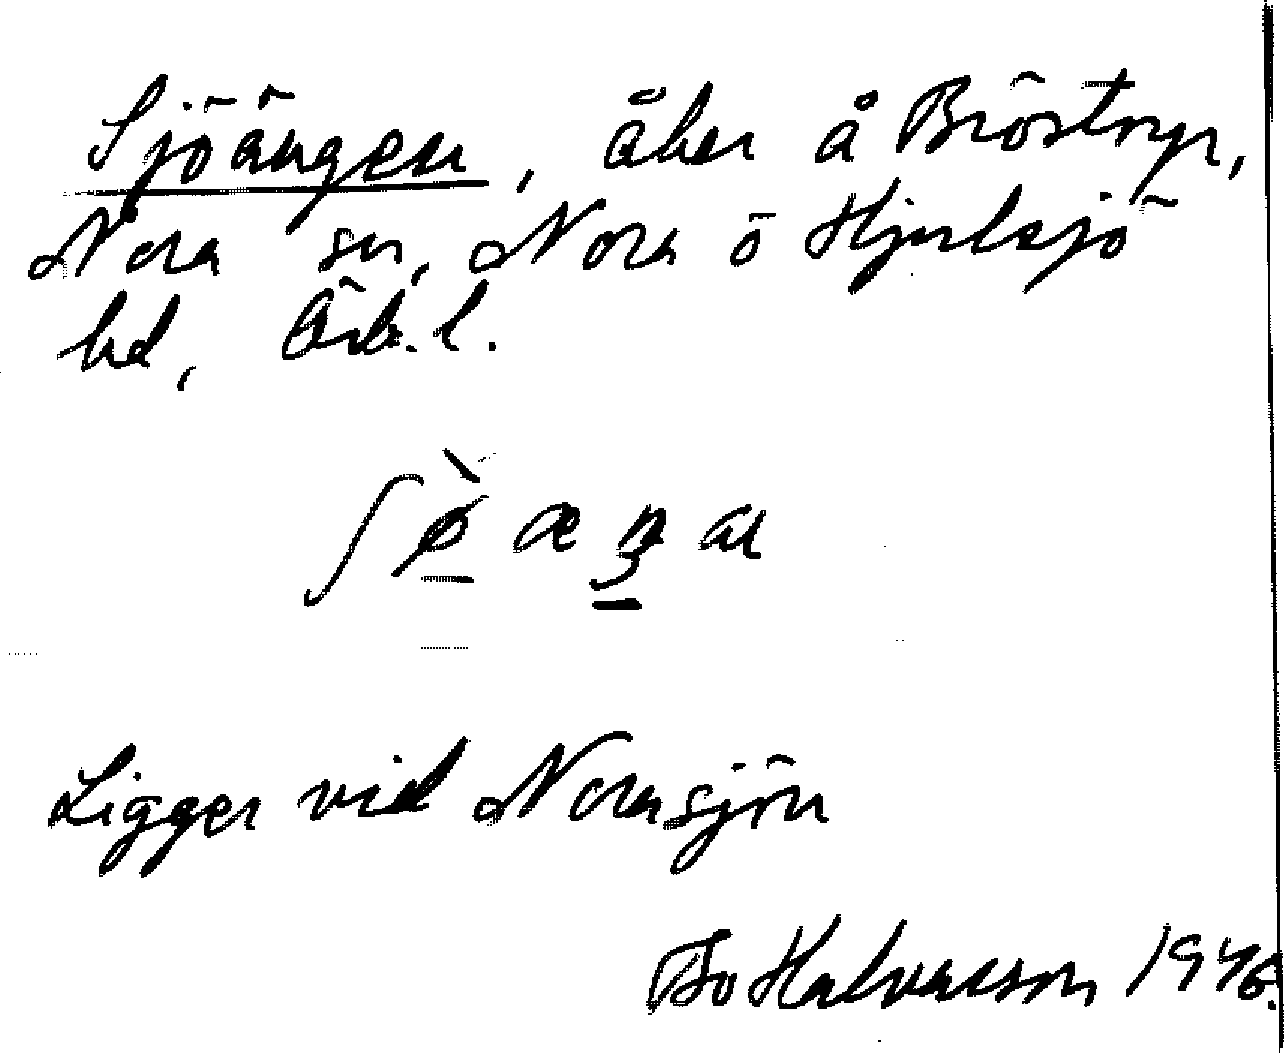 Sjöängen, åker å Bröstorp,
Nora sn, Nora o Hjulsjö
hd, Örb. l.
ʃø̀æŋa
Ligger vid Norasjön
Bo Halvarsson 1946.